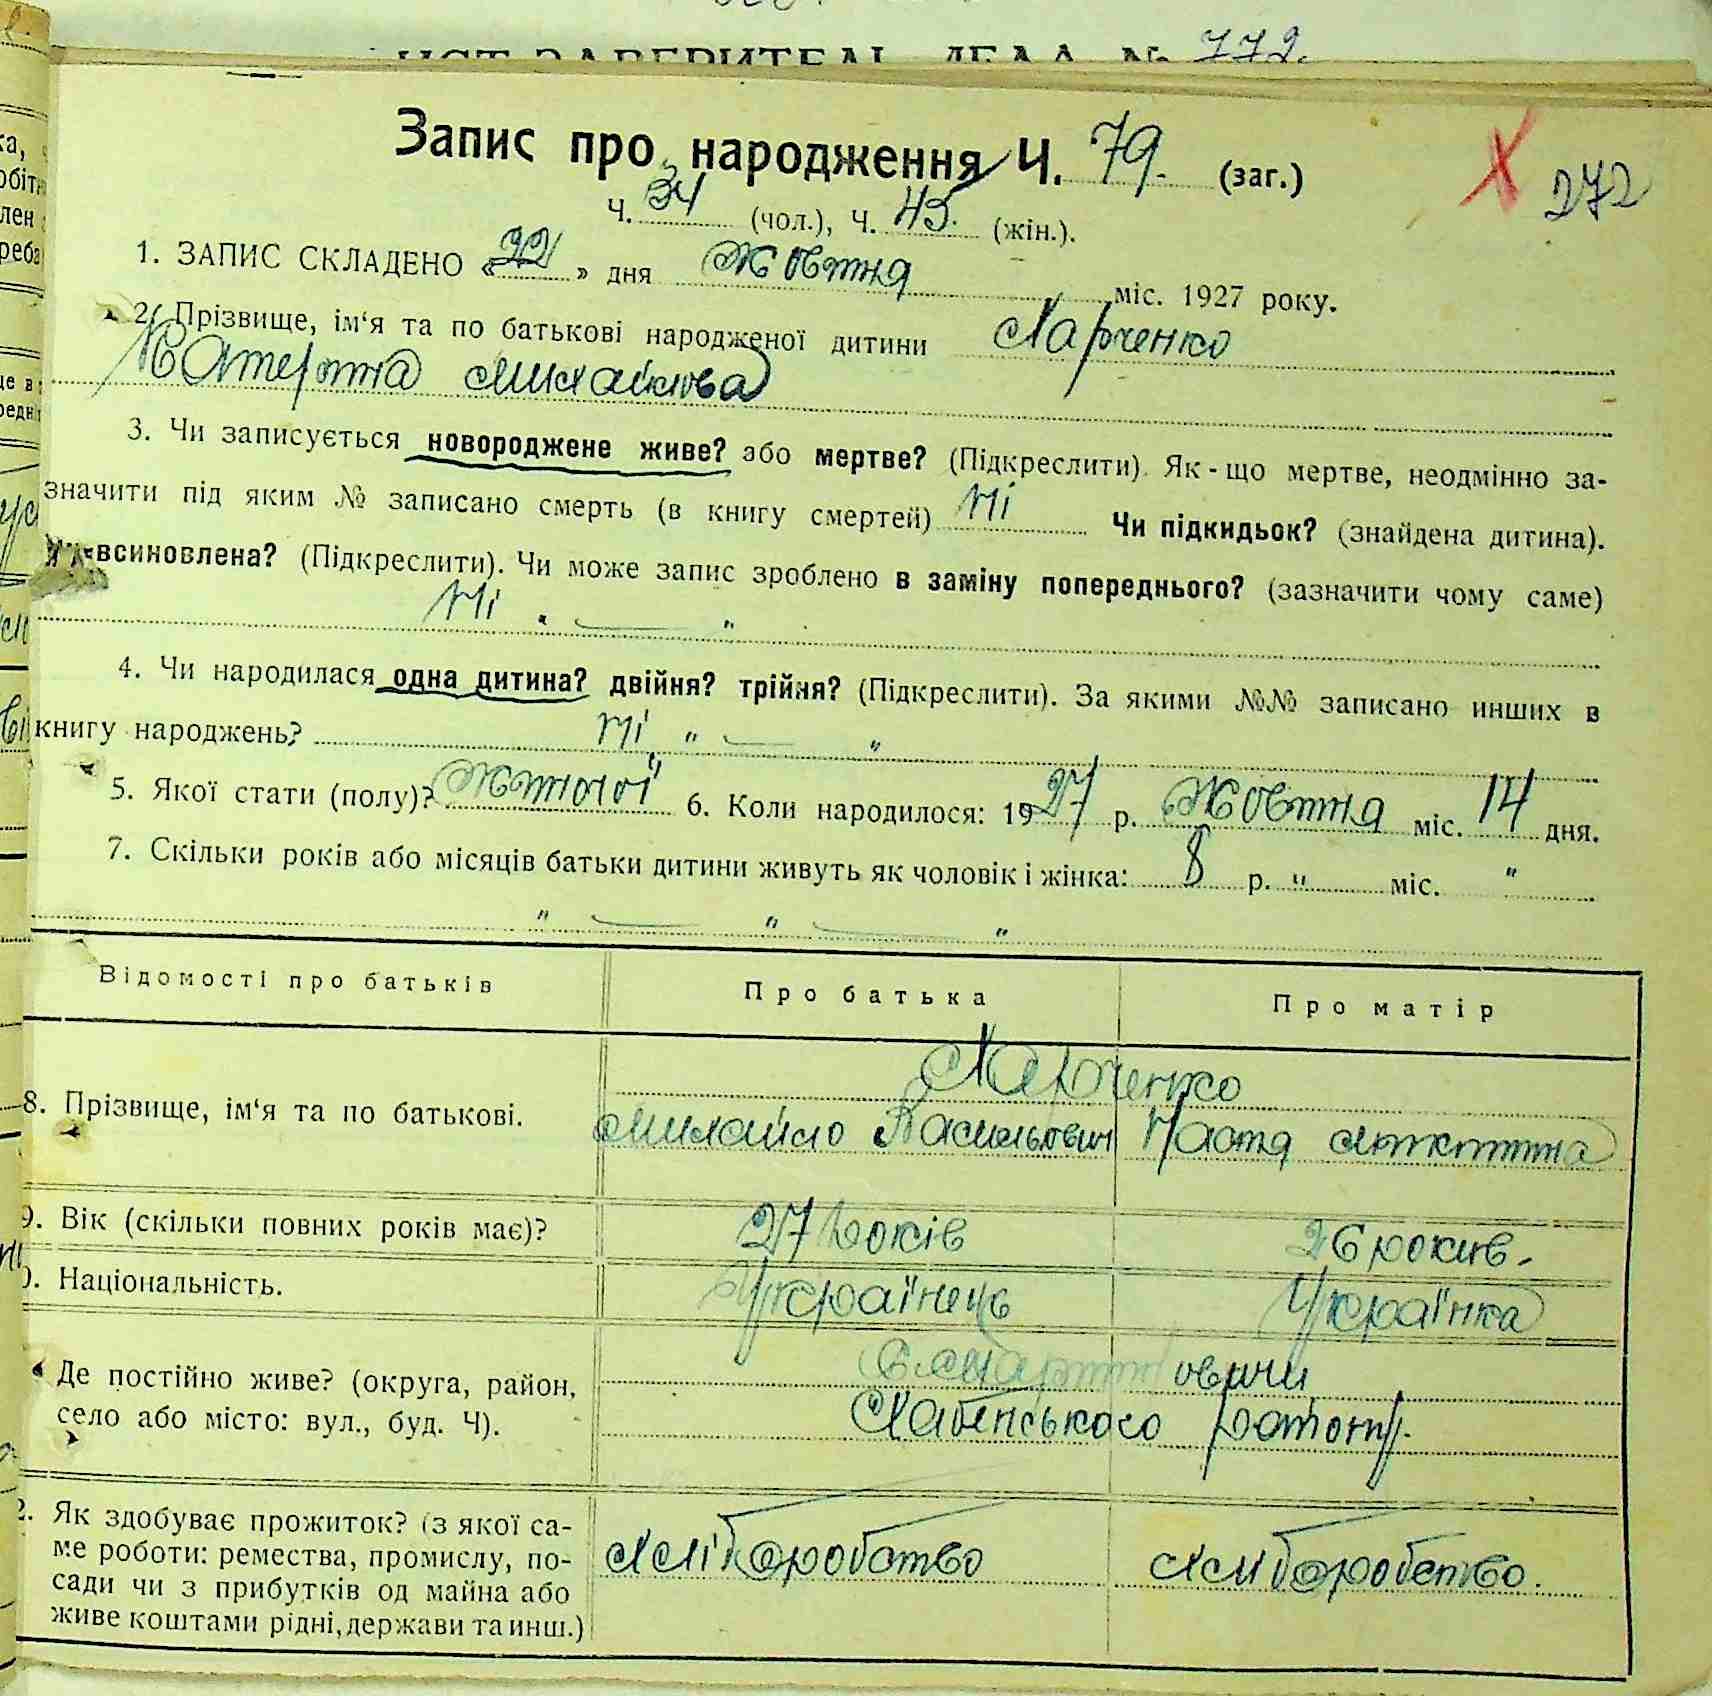 ЗАВЕРИТЕЛ ДЕЛА № 772.
Запис про народження Ч. 79. (заг.)
272
Ч. 34 (чол.), Ч. 45. (жін.).
1. ЗАПИС СКЛАДЕНО «22» дня Жовтня міс. 1927 року.
2. Прізвище, ім‘я та по батькові народженої дитини Харченко
Катерина Михайлова
3. Чи записується новороджене живе? або мертве? (Підкреслити). Як-що мертве, неодмінно за-
значити під яким № записано смерть (в книгу смертей) Ні Чи підкидьок? (знайдена дитина).
всиновлена? (Підкреслити). Чи може запис зроблено в заміну попереднього? (зазначити чому саме)
Ні " — "
4. Чи народилася одна дитина? двійня? трійня? (Підкреслити). За якими №№ записано инших в
книгу народжень? Ні " — "
5. Якої стати (полу)? Жіночої 6. Коли народилося: 1927 р. Жовтня міс. 14 дня.
7. Скільки років або місяців батьки дитини живуть як чоловік і жінка: 8 р. " міс. "
" — " — "
Відомості про батьків Про батька Про матір
Харченко
8. Прізвище, ім‘я та по батькові. Михайло Васильович Настя
9. Вік (скільки повних років має)? 27 років 26 рокив.
Національність. Українець Українка
Де постійно живе? (округа, район,
село або місто: вул., буд. Ч). Хабенського району.
Як здобуває прожиток? (з якої са-
ме роботи: ремества, промислу, по-
сади чи з прибутків од майна або
живе коштами рідні, держави та инш.)
Хліборобство Хлиборобство.